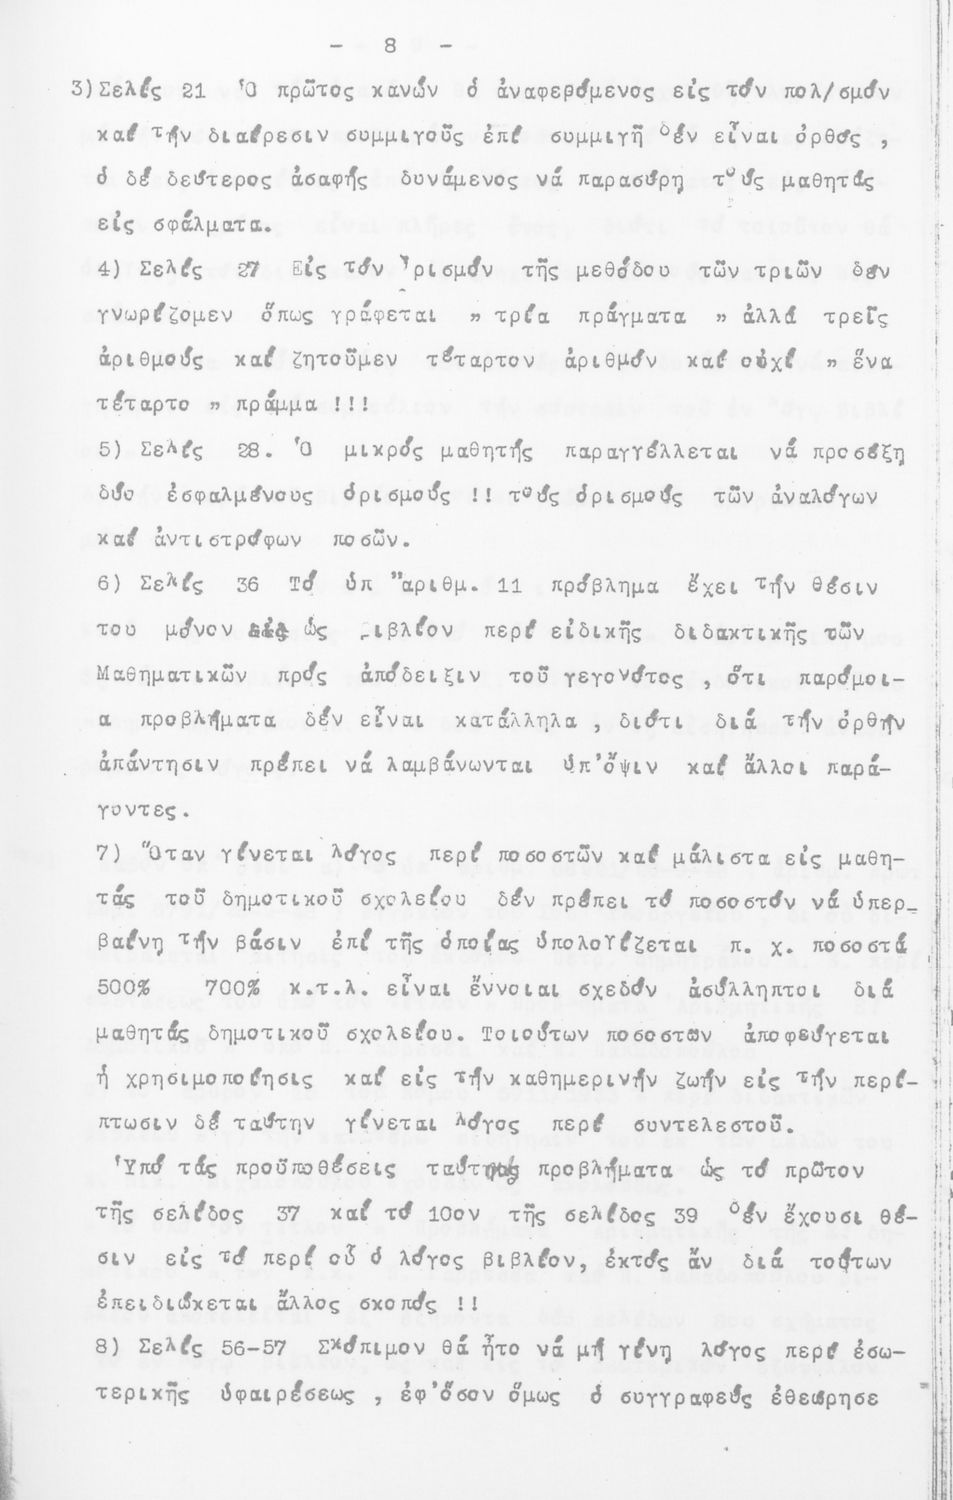 - 8 -
3)Σελίς 21 Ὁ πρῶτος κανών ὁ ἀναφερόμενος εἰς τόν πολ/σμόν
καί τήν διαίρεσιν συμμιγοῦς ἐπί συμμιγῆ δέν εἶναι ὀρθός ,
ὁ δέ δεύτερος ἀσαφής δυνάμενος νά παρασύρη τούς μαθητάς
εἰς σφάλματα.
4) Σελίς 27 Εἰς τόν ὁρισμόν τῆς μεθόδου τῶν τριῶν δέν
γνωρίζομεν ὅπως γράφεται " τρία πράγματα " ἀλλά τρεῖς
ἀριθμούς καί ζητοῦμεν τέταρτον ἀριθμόν καί οὐχί " ἕνα
τέταρτο " πράμμα !!!
5) Σελίς 28. Ὁ μικρός μαθητής παραγγέλλεται νά προσέξη
δύο ἐσφαλμένους ὁρισμούς !! τούς ὁρισμούς τῶν ἀναλόγων
καί ἀντιστρόφων ποσῶν.
6) Σελίς 36 Τό ὑπ "αριθμ. 11 πρόβλημα ἔχει τήν θέσιν
του μόνον ὡς βιβλίον περί εἰδικῆς διδακτικῆς τῶν
Μαθηματικῶν πρός ἀπόδειξιν τοῦ γεγονότος , ὅτι παρόμοι-
α προβλήματα δέν εἶναι κατάλληλα , διότι διά τήν ὀρθήν
ἀπάντησιν πρέπει νά λαμβάνωνται ὑπ'ὄψιν καί ἄλλοι παρά-
γοντες.
7) Ὅταν γίνεται λόγος περί ποσοστῶν καί μάλιστα εἰς μαθη-
τάς τοῦ δημοτικοῦ σχολείου δέν πρέπει τό ποσοστόν νά ὑπερ-
βαίνη τήν βάσιν ἐπί τῆς ὁποίας ὑπολογίζεται π. χ. ποσοστά
500% 700% κ.τ.λ. εἶναι ἔννοιαι σχεδόν ἀσύλληπτοι διά
μαθητάς δημοτικοῦ σχολείου. Τοιούτων ποσοστῶν ἀποφεύγεται
ἡ χρησιμοποίησις καί εἰς τήν καθημερινήν ζωήν εἰς τήν περί-
πτωσιν δέ ταύτην γίνεται λόγος περί συντελεστοῦ.
Ὑπό τάς προϋποθέσεις ταύτας προβλήματα ὡς τό πρῶτον
τῆς σελίδος 37 καί τό 10ον τῆς σελίδος 39 δέν ἔχουσι θέ-
σιν εἰς τό περί οὗ ὁ λόγος βιβλίον, ἐκτός ἄν διά τούτων
ἐπειδιώκεται ἄλλος σκοπός !!
8) Σελίς 56-57 Σκόπιμον θά ἦτο νά μή γίνη λόγος περί ἐσω-
τερικῆς ὑφαιρέσεως , ἐφ'ὅσον ὅμως ὁ συγγραφεύς ἐθεώρησε